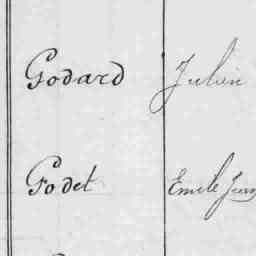 Godard Julien
Godet Emile Jean